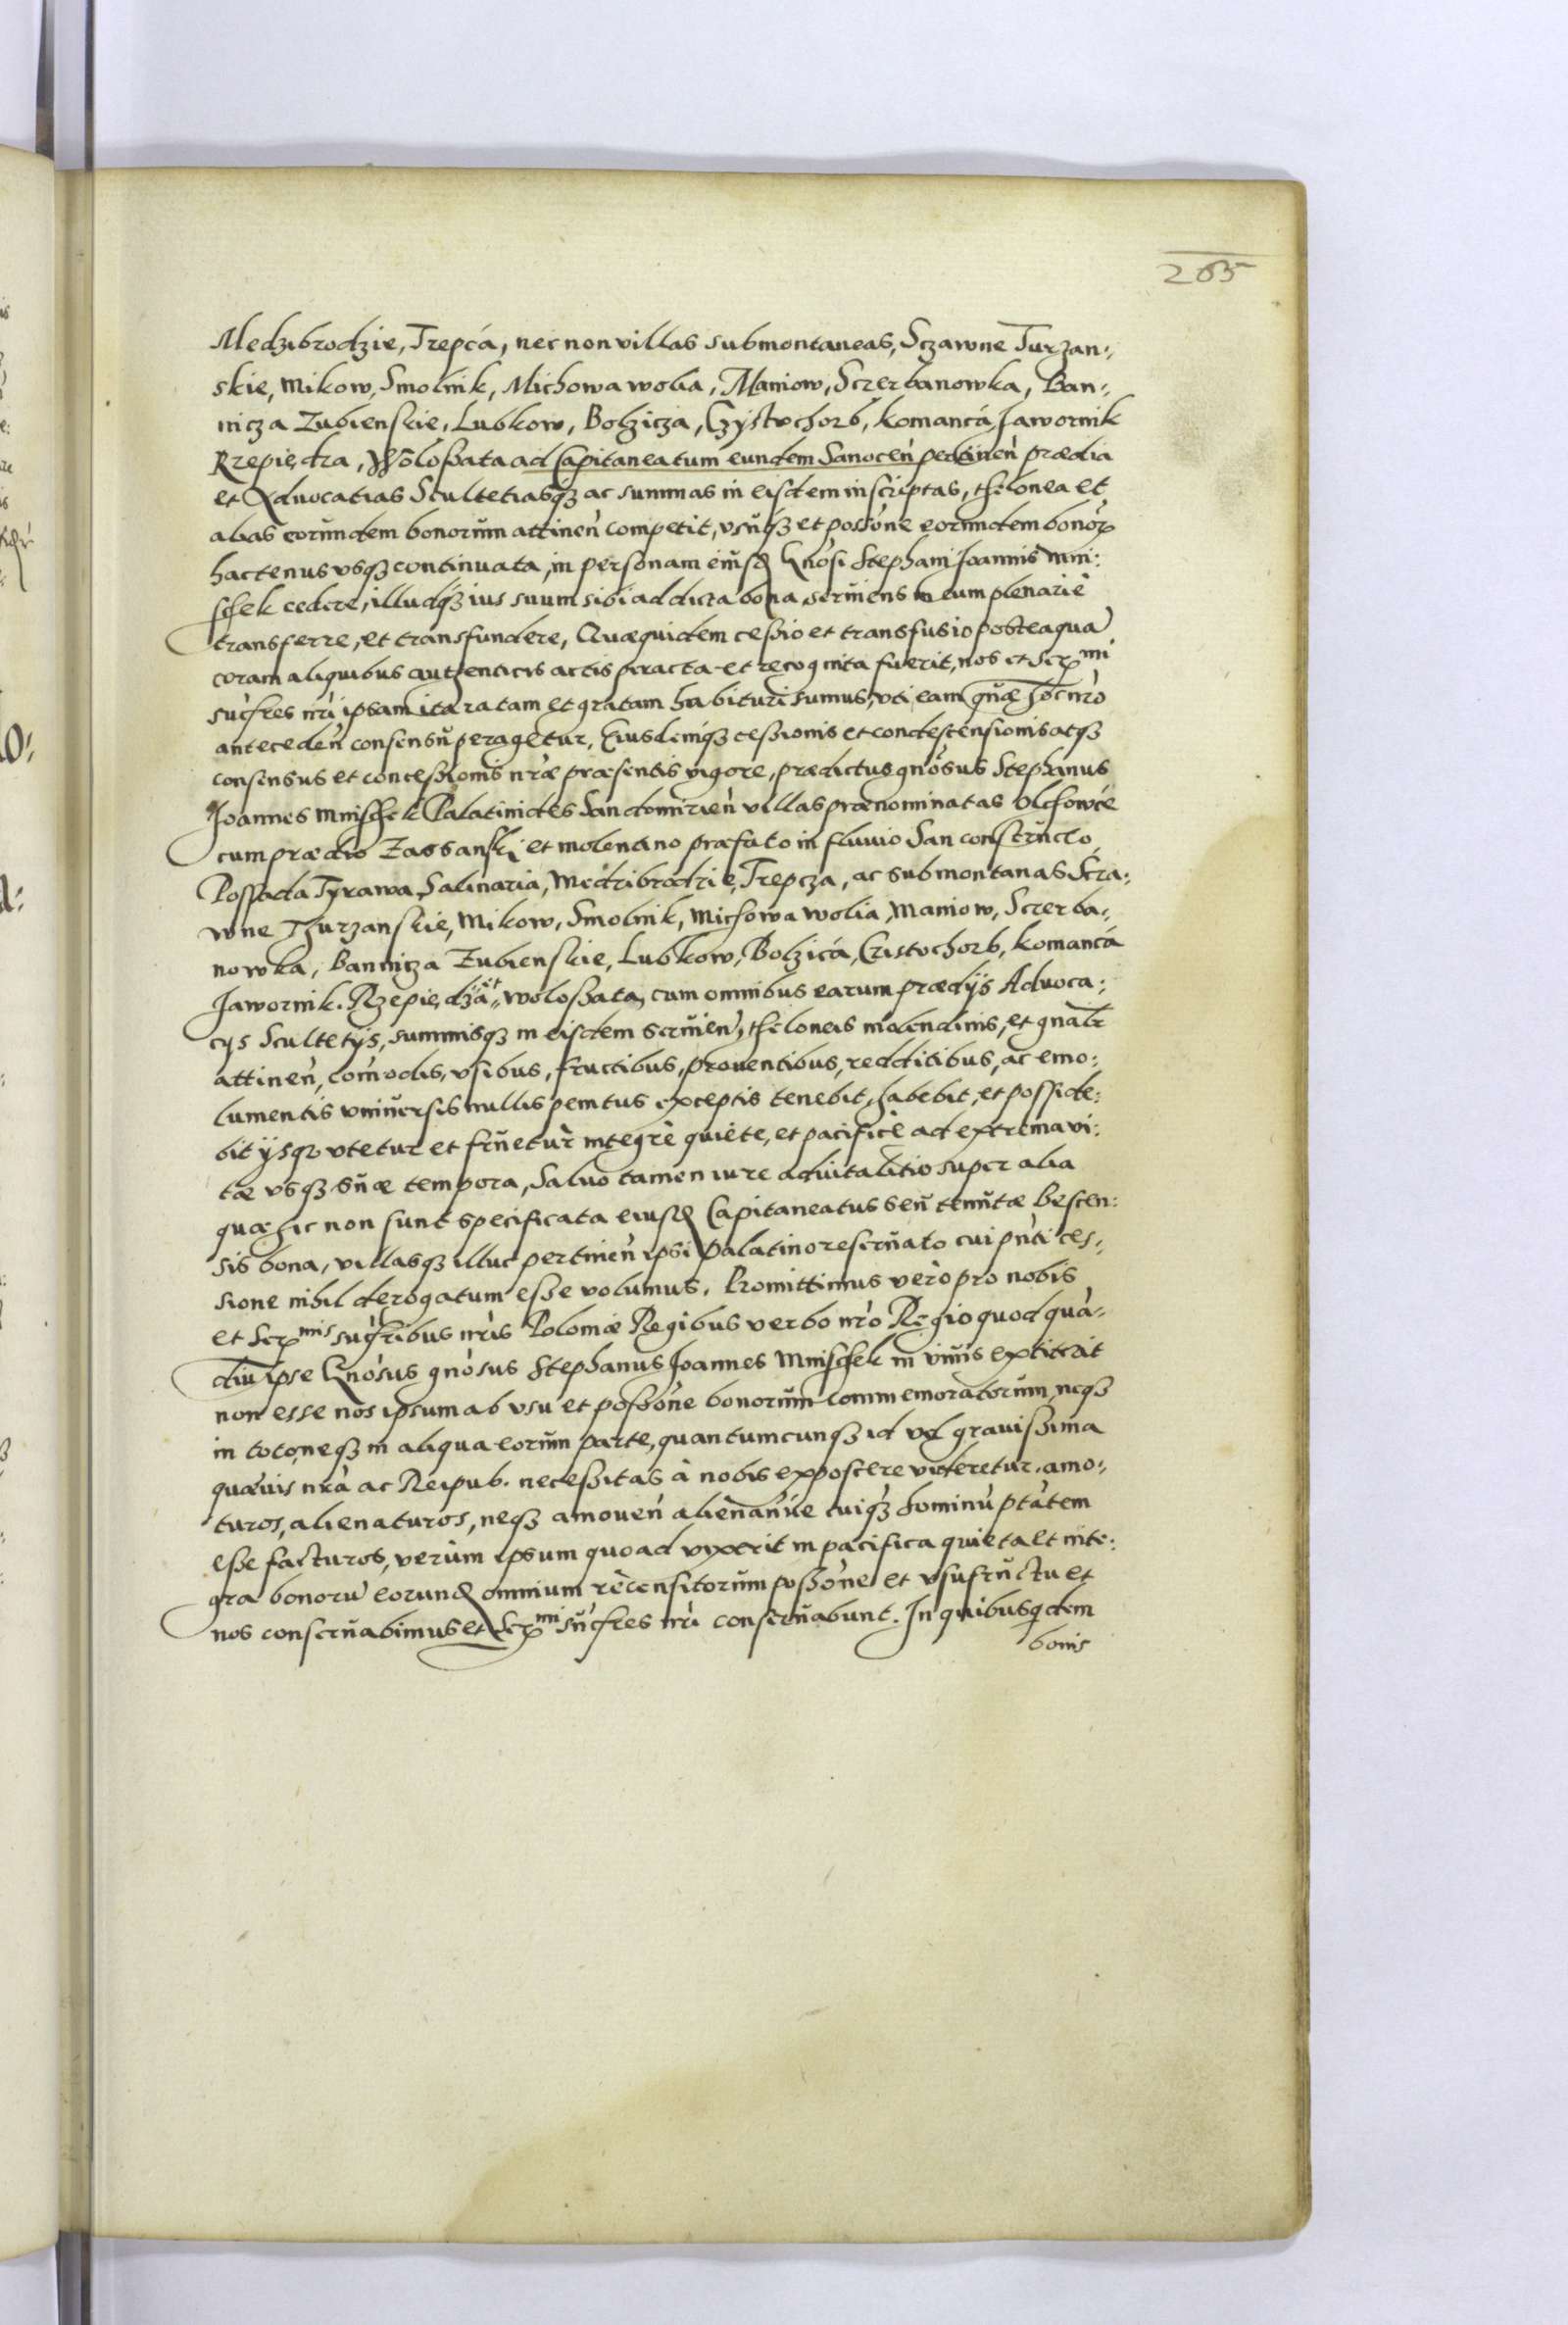 265
Medzibrodzie, Trepcá, nec non villas submontaneas, Sczawne Turzan:,
skie, Mikow, Smolnik, Michowa wolia, Maniow, Sczerbanowka, Ban:,
nicza Zubienskie, Lubkow, Bolzicza, Czystochorb, Komancá, Jawornik
Rzepiedza, Wolossata ad Capitaneatum eundem Sanoceń pertineń prædia
et Advocatias Scultetiasqȝ ac summas in eisdem inscriptas, thelonea et
alias eorundem bonorum attineń competit, usuqȝ et possōne eorundem bonoꝝ
hactenus usqȝ continuata, in personam eiusd Gnosi Stephani Joannis Mni:
schek cedere, illudqȝ ius suum sibi ad dicta bona serviens in eum plenariè
transferre, et transfundere, Quæquidem cessio et transfusio posteaquà
coram aliquibus authenticis actis peracta et recognita fuerit, nos et Ser mi
sucres nri ipsam ita ratam et gratam habituri sumus, uti eam quæ hoc nrò
antecedeń consensu peragetur, Eiusdemqȝ cessionis et condescensionis atqȝ
consensus et concessionis nræ præsentis vigore, prædictus gnosus Stephanus
Joannes Mnischek Palatinides Sandomirień villas prænominatas Olchowce
cum prædio Zassanski et molendino præfato in fluvio San constructo
Possada Tyrawa Salinaria, Medzibrodzie, Trepcza, ac submontanas Scza:,
wne Thurzanskie, Mikow, Smolnik, Michowa wolia, Maniow, Sczerba:,
nowka, Bannicza Zubienskie, Lubkow, Bolzicá, Czistochorb, Komancá
Jawornik. Rzepiedzá et Wolossata, cum omnibus earum prædijs Advoca:,
cys Scultetys, summisqȝ in eisdem servień, theloneis molendinis, et gnalr
attineń, comodis, usibus, fructibus, proventibus, redditibus, ac emo:,
lumentis universis nullis penitus exceptis tenebit, habebit, et posside:
bit ysqȝ utetur et fruetur integrè quiete, et pacificè ad extrema vi:
tæ usqȝ suæ tempora, Salvo tamen iure advitalitio super alia
quæ hic non sunt specificata eiusd Capitaneatus seu tenutæ Bescen:
sis bona, villasqȝ illuc pertineń ipsi Palatino reservato cui pnti ces:,
sione nihil derogatum esse volumus. Promittimus verò pro nobis
et Ser mis sucribus nris Poloniæ Regibus verbo nrò Regio quod quà:,
diu ipse Gnosus gnosus Stephanus Joannes Mnischek in vivis extiterit
non esse nos ipsum ab usu et possōne bonorum commemoratorum neqȝ
in toto, neqȝ in aliqua eorum parte, quantumcunqȝ id vel gravissima
quævis nra ac Reipub. necessitas à nobis exposcere videretur. amo:,
turos, alienaturos, neqȝ amoveń alienańve cuiqȝ hominu ptatem
esse facturos, verùm ipsum quoad vixerit in pacifica quieta et inte:,
gra bonoru eorund omnium recensitorum possōne et usufructu et
nos conservabimus et Ser mi sucres nri conservabunt. In quibusqdem
bonis